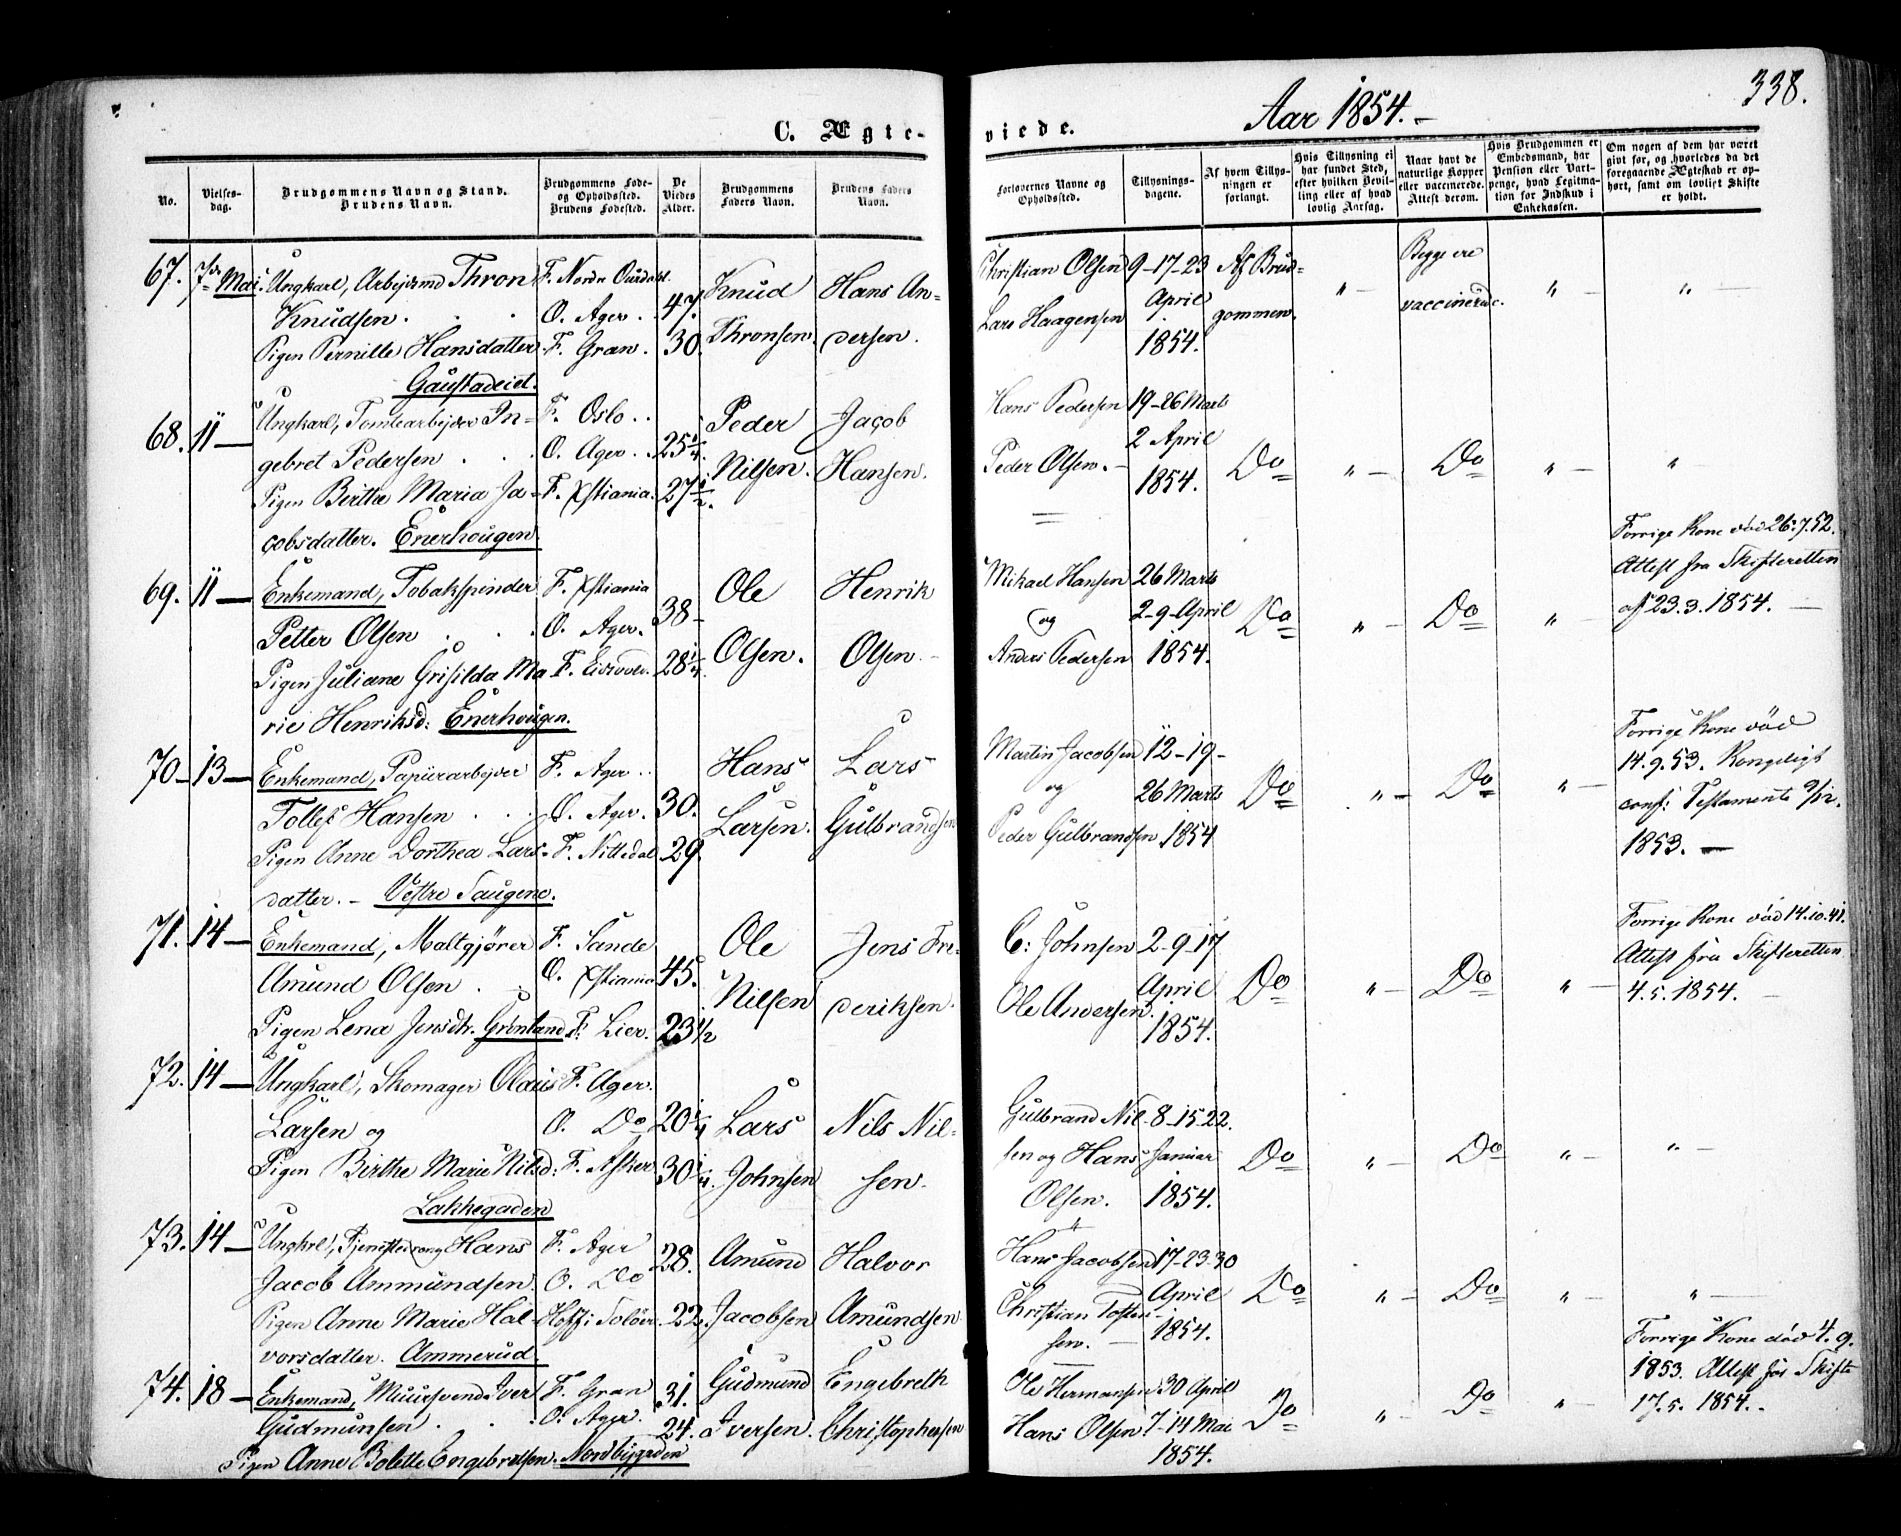 338.
Aar 1854.
C. Ægte- viede.
No.
Vielses-dag.
Brudgommens Navn og Stand. Brudens Navn.
Brudgommens Føde- og Opholdssted. Brudens Fødested.
De Viedes Alder.
Brudgommens Faders Navn.
Brudens Faders Navn.
Forlovernes Navne og Opholdssted.
Tillysnings-dagene.
Af hvem Tillysningen er forlangt.
Hvis Tillysning ei har fundet Sted, efter hvilken Bevilling eller af hvad lovlig Aarsag.
Naar havt de naturlige Kopper eller vaccinerede. Attest derom.
Hvis Brudgommen er Embedsmand, har Pension eller Vartpenge, hvad Legitimation for Indskud i Enkekassen.
Om nogen af dem har været gift før, og hvorledes da det foregaaende Ægteskab er ophørt, samt om lovligt Skifte er holdt.
67. 7de Mai. Ungkarl, Arbejdsmd Thron F. Nordre Ourdahl. Knud Hans An- Christian Olsen 9-17-23 Af Brud- " - Begge ere " - " -
Knudsen . . . O. Ager. 47. Lars Haagensen April gommen. vaccinerede.
Pigen Pernille Hansdatter. F. Gran. 30. Thronsen. dersen. 1854.
Gaustadeiet.
68. 11 - Ungkarl, Tomtearbejder In- F. Oslo .. Peder Jacob Hans Pedersen 19-26 Marts
gebret Pedersen . . O. Ager . 25 1/4. Nilsen. Hansen. Peder Olsen. - 2 April Do " - Do " - "
Pigen Birthe Maria Ja- F. Xstiania. 27 1/2. 1854.
cobsdatter. Enerhougen
69. 11 - Enkemand, Tobakspinder F. Xstiania Ole Henrik Mikael Hansen 26 Marts Forrige Kone død 26.7.52.
Petter Olsen . . . O. Ager. 38 - og 2-9-April Do " - Do " - Attest fra Skifteretten
Pigen Juliane Grisilda Ma F. Eidsvold. 28 1/4. Olsen. Olsen. Anders Pedersen 1854. af 23.3.1854. -
rie Henriksd: Enerhougen.
70 - 13 - Enkemand, Papiirarbejder F. Ager .. Hans Lars Martin Jacobsen 12-19- Forrige Kone død
Tolles Hansen . . . O. Ager. 30. og 26 Marts Do " - Do " - 14.9.53. Kongeligt
Pigen Anne Dorthea Lars- F. Nittedal 29. Larsen. Gulbrandsen Peder Gulbrandsen 1854 conf: Testamente 9/12.
datter. - Vestre Saugene. 1853. -
71. 14 - Enkemand, Maltgjører F. Sande Ole Jens Fre- C: Johnsen 2-9-17 Forrige Kone død 14.10.41.
Amund Olsen . . O. Xstiania 45. Nilsen deriksen. Ole Andersen. April Do " - Do " - Attest fra Skifteretten
Pigen Lena Jensdtr. Grønland F. Lier. 23 1/2 1854. 4.5.1854. -
72. 14 - Ungkarl, Skomager Olaus F. Ager. Gulbrand Nil- 8-15-22.
Larsen og O. Do 20 1/4 Lars Nils Nil- sen og Hans Januar Do " - Do " - " -
Pigen Birthe Marie Nilsd: F. Asker 30 1/4. Johnsen sen. Olsen. 1854.
Lakkegaden
73. 14 - Ungkrl, Tjenestedreng Hans F. Ager 28. Amund Halvor Hans Jacobsen 17-23-30
Jacob Ammundsen. O. Do April Do " - Do " - " -
Pigen Anne Marie Hal- Hoff i Soløer. 22. Jacobsen Amundsen Christian Tosten- 1854.
vorsdatter. Ammerud. sen. -
74. 18 - Enkemand, Muursvend Iver F. Gran 31. Gudmund Engebreth Ole Hermansen 30 April Forrige Kone død 4.9.
Gudmunsen . . . O. Ager. 24. Iversen. Christophersen Hans Olsen 7-14 Mai Do " - Do " - 1853. Attest for Skifte
Pigen Anne Bolette Engebretsen. Nordbygaden 1854. 17.5.1854.